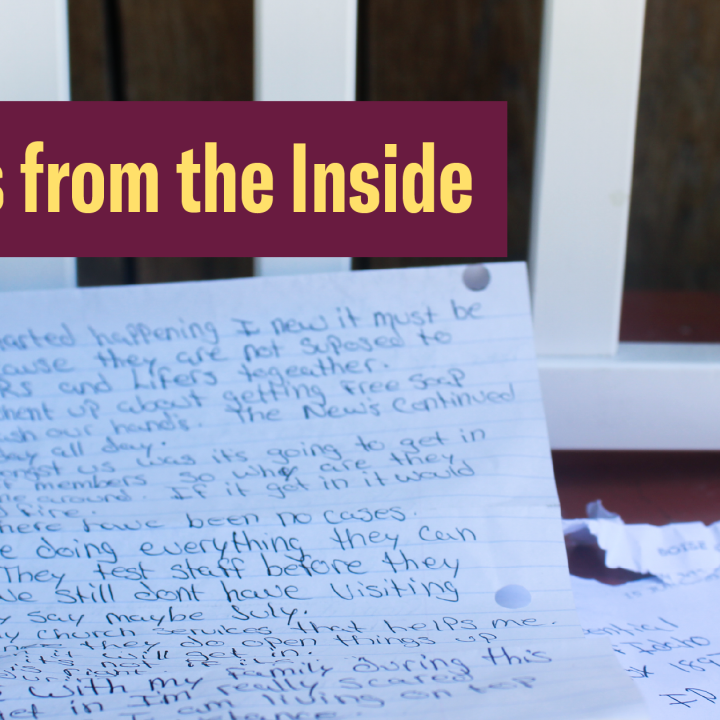 s from the Inside
arted happening I new it must be
ause they are not suposed to
RS and Lifers togeather.
hent up about getting free soap
sh our hands. The News continued
day all day.
ngst us was its going to get in
f members so why are they
me around. If it get in it would
fire.
here have been no cases.
e doing everything they can
They test staff before they
We still dont have visiting
y say maybe July.
y church services that helps me.
once they do open things up
it will get in.
s with my family during this
et in I'm really scared
I am living on top